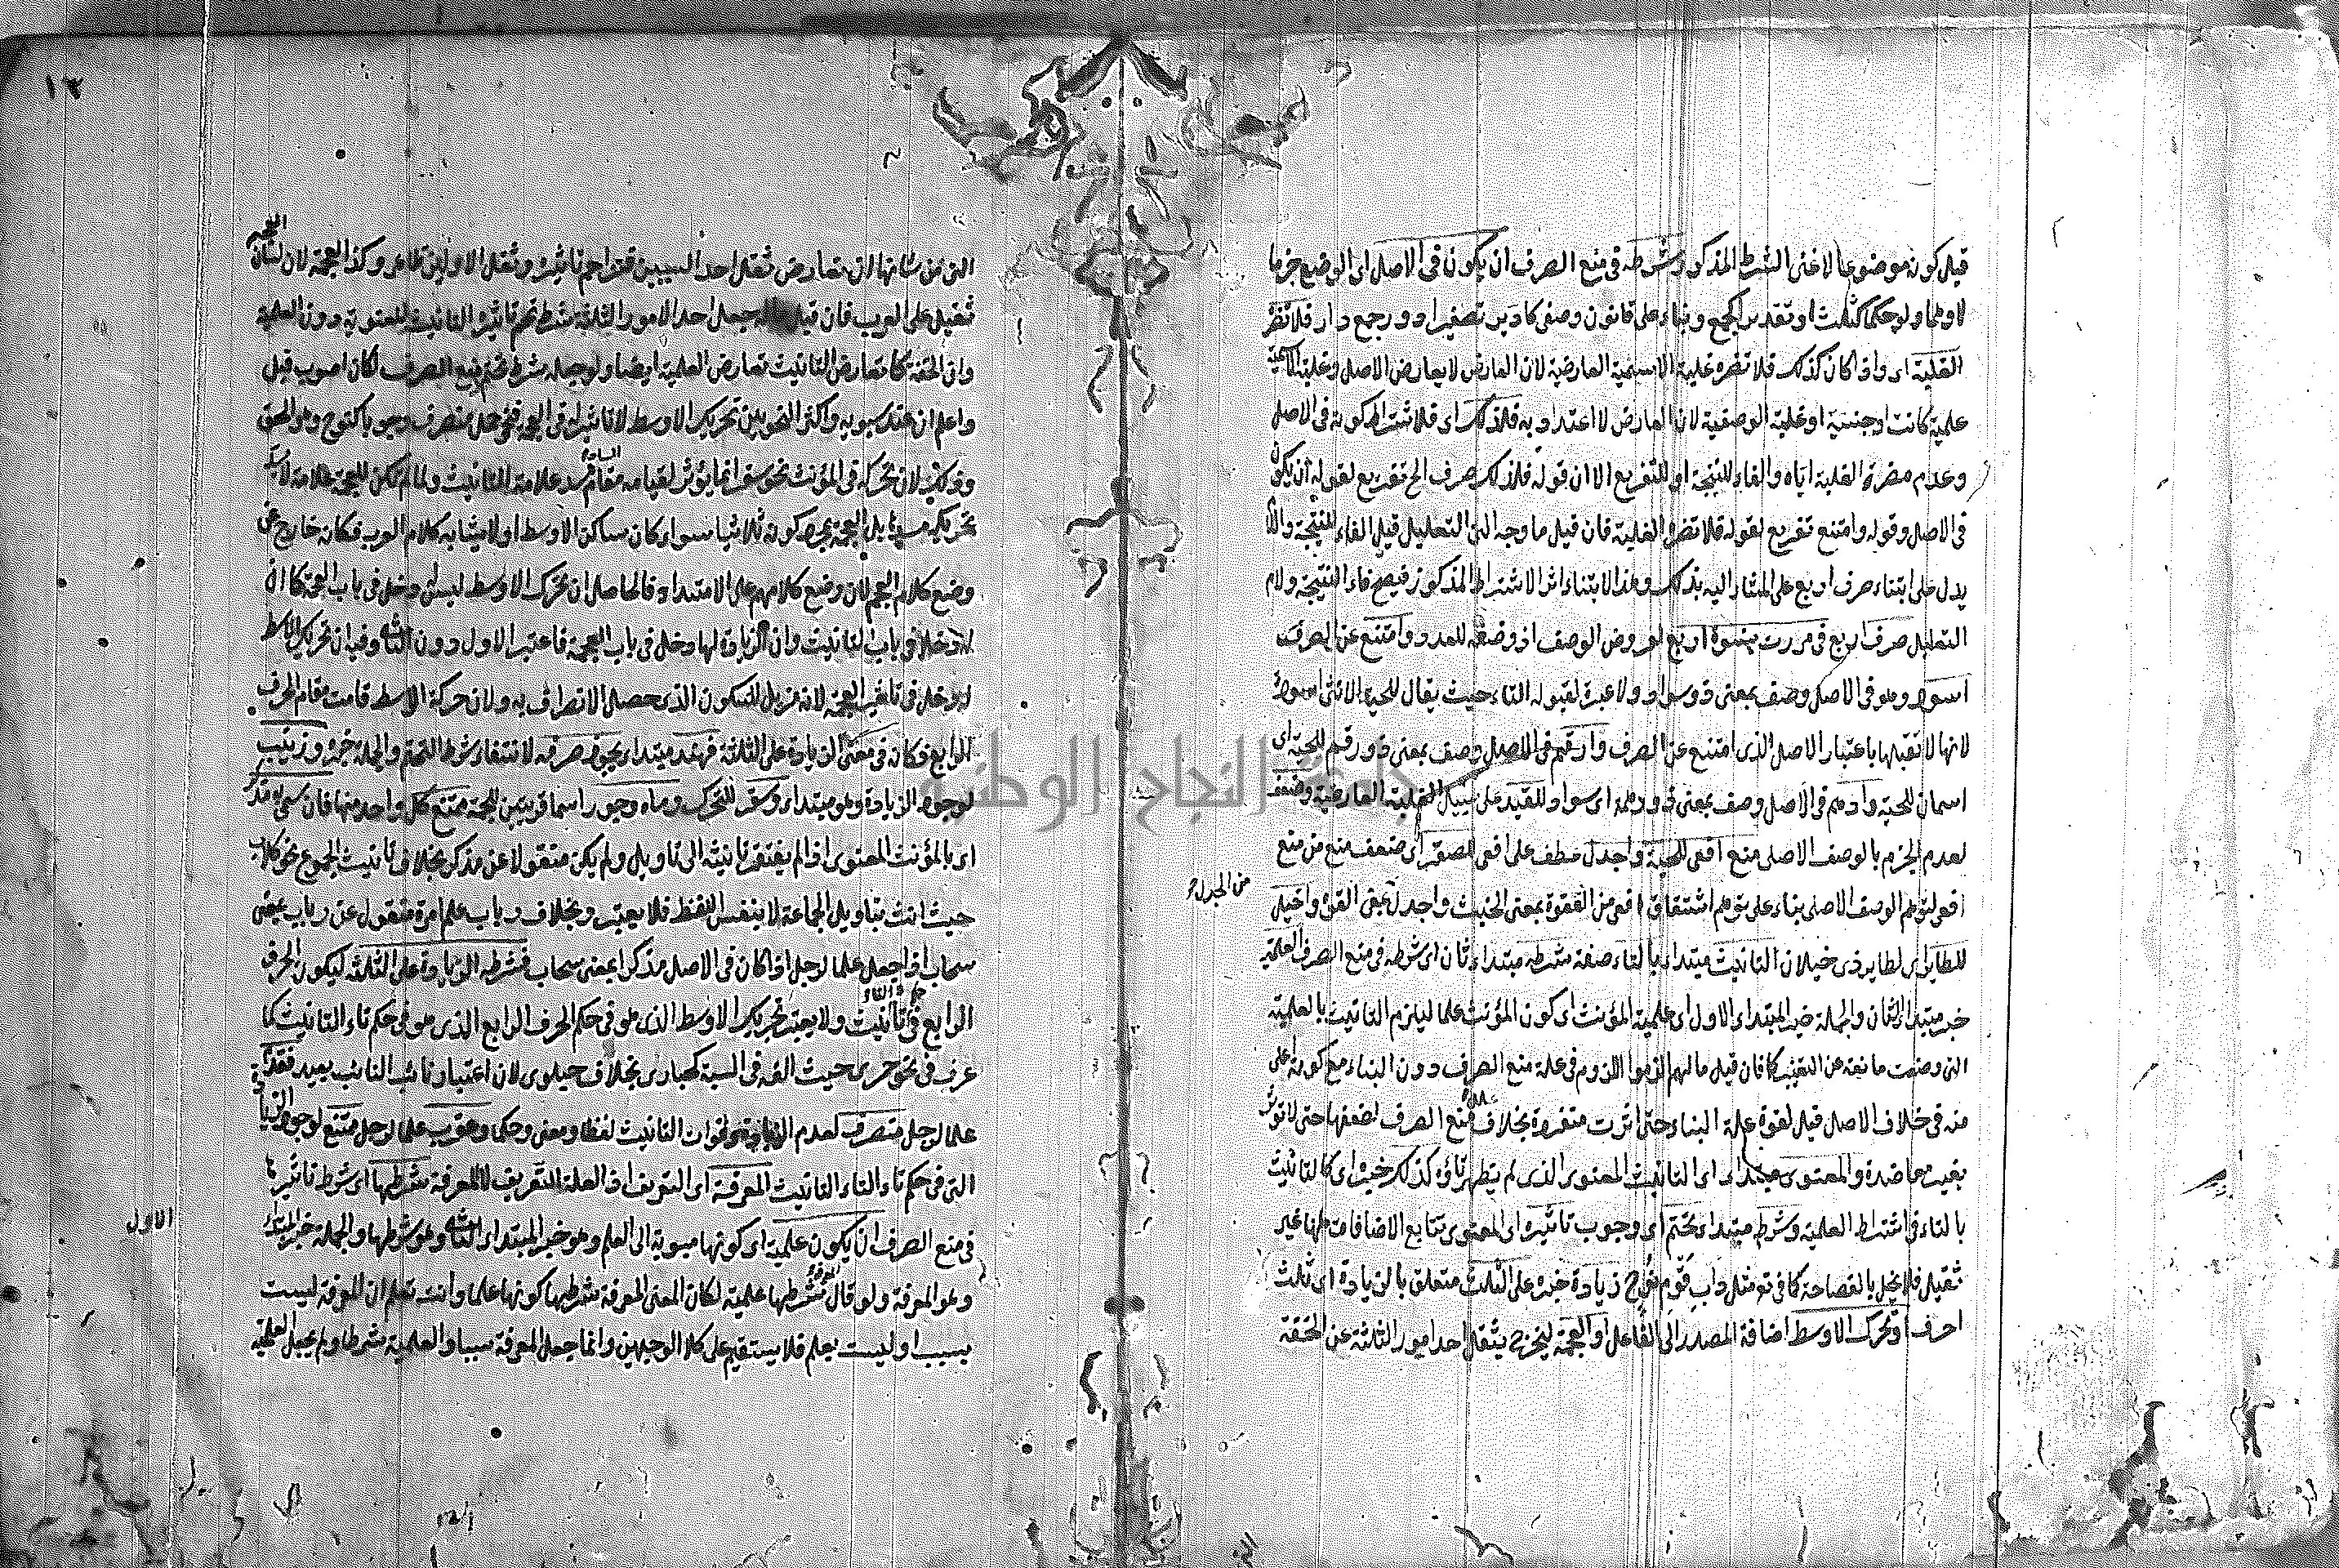 قيل كونه موضوعا لاغنى الشرط المذكور وشرطه في منع الصرف ان يكون في الاصل اى الوضع جزما
لا وهما ولو حكما كثلث او تقدير الجمع وبناء على قانون وصفى كادير تصغير ادور جمع دار فلا تضره
الغلبة اى واذا كان كذلك فلا تضره غلبة الاسمية العارضية لان العارض لا يعارض الاصل وغلبة الاسمية
علمية كانت او جنسية او غلبة الوصفية لان العارض لا اعتداد به فلذلك اى فلاشتراط كونه في الاصل
وعدم مضرة الغلبة اياه والفاء للنتيجة او للتفريع الا ان قوله فلذلك صرف الخ تفريع لقوله ان يكون
في الاصل وقوله وامتنع تفريع لقوله فلا تضره الغلبة فان قيل ما وجه لان التعليل قبل الفاء للنتيجة واللام
يدل على ابتناء صرف اربع على المشار اليه بذلك وهذا الابتناء اثر الاشتراط المذكور فيصح فاء النتيجة ولام
التعليل صرف اربع في مررت بنسوة اربع لعروض الوصف اذ وضعه للعدد وامتنع عن الصرف
اسود وهو في الاصل وصف بمعنى ذو سواد ولا عبرة لقبوله التاء حيث يقال للحية الانثى اسودة
لانها لا تقبلها باعتبار الاصل الذى امتنع عن الصرف وارقم في الاصل وصف بمعنى ذو رقم للحية اى
اسمان للحية وادهم في الاصل وصف بمعنى ذو دهمة اى سواد للقيد على سبيل الغلبة العارضية وضعف
لعدم الجزم بالوصف الاصلى منع افعى للحية واجدل عطف على افعى للصقر اى ضعف منع من منع
افعى لتوهم الوصف الاصلى بناء على توهم اشتقاق افعى من الفعوة بمعنى الخبث واجدل بمعنى القوة واخيل
من الجدل
للطاير اى لطاير ذى خيلان التانيث مبتداء بالتاء صفة شرطه مبتداء ثان اى شرطه في منع الصرف العلمية
خبر مبتداء الثان والجملة خبر المبتداء الاول اى علمية المؤنث اى كون المؤنث علما ليلزم التانيث بالعلمية
التى وضعت مانعة عن التغير كما فان قيل مالهم الزموا اللزوم في علة منع الصرف دون البناء مع كونه على
منه في خلاف الاصل قيل لقوة علة البناء حتى اثرت منفردة بخلاف منع الصرف لضعفها حتى لا توثر
بغيث معاضدة والمعنوى مبتداء اى التانيث المعنوى الذى لم يظهر تاؤه كذلك خبره اى كالتانيث
بالتاء في اشتراط العلمية وشرط مبتداء تحتم اى وجوب تاثيره اى المعنوى تتابع الاضافات ههنا غير
ثقيل فلا يخل بالفصاحة كما في قوله مثل داب قوم نوح زيادة خبره على الثلث متعلق بالزيادة اى ثلث
احرف او تحرك الاوسط اضافة المصدر الى الفاعل او العجمة ليخرج بثقل احد امور الثلثة عن الخفة
١٣
التى من شانها ان تعارض ثقل احد السببين فتزاحم تاثيره وثقل الاولين ظاهر وكذا العجمة لان لسان العجم
ثقيل على العرب فان قيل جعل احد الامور الثلثة شرط تحتم تاثير التانيث المعنوى دون العلمية
وان الخفة كما تعارض التانيث تعارض العلمية ايضا ولو جعله شرط تحتم منع الصرف لكان اصوب قيل
واعلم ان عند سيبويه واكثر النحويين تحريك الاوسط لا تاثير له في العجمة فنحو لمك منصرف وجوبا كنوح وهو الحق
وذلك لان تحركه في المؤنث نحو سقر انما يؤثر لقيامه مقام الساد مسد علامة التانيث ولما لم تكن للعجمة علامة لا يسد
تحريكه مسدها بل العجمة بمجرد كونه ثلاثيا سواء كان ساكن الاوسط او لا يشابه كلام العرب فكانه خارج عن
وضع كلام العجم لان وضع كلامهم على الامتداد فالحاصل ان تحرك الاوسط ليس له دخل في باب العجمة كما ان
له دخلا في باب التانيث وان الزيادة لها دخل في باب العجمة فاعتبر الاول دون الثانى وفيه ان تحريك الاوسط
له دخل في تاثير العجمة لانه مزيل للسكون الذى حصل الانصراف به ولان حركة الاوسط قامت مقام الحرف
الرابع فكان في معنى الزيادة على الثلثة فهند مبتداء يجوز صرفه لانتفاء شرط التحتم والجملة خبره وزينب
لوجود الزيادة وهو مبتداء وسقر للتحرك وماه وجور اسما قريتين للعجمة ممتنع كل واحد منها فان سمى به مذكر
اى بالمؤنث المعنوى اذا لم يفتقر تانيثه الى تاويل ولم يكن منقولا عن مذكر بخلاف تانيث الجموع نحو كلاب
حيث انث بتاويل الجماعة لا بنفس اللفظ فلا يعتبر وبخلاف رباب علم امرة منقول عن رباب بمعنى
سحاب اذا جعل علما لرجل اذا كان في الاصل مذكرا بمعنى سحاب فشرطه الزيادة على الثلثة ليكون الحرف
الرابع في حكم تاء التانيث ولا يعتبر تحريك الاوسط الذى هو في حكم الحرف الرابع الذى هو في حكم تاء التانيث كما
عرف في نحو حبرى حيث الفه في النسبة كحبارى بخلاف حبلوى لان اعتبار نائب النائب بعيد فقدم
علما لرجل منصرف لعدم الزيادة وفوات التانيث لفظا ومعنى وحكما وعقرب علما لرجل ممتنع لوجود الزيادة
التى في حكم تاء التانيث المعرفة اى التعريف اذ العلة التعريف لا المعرفة شرطها اى شرط تاثيرها
في منع الصرف ان يكون علمية اى كونها منسوبة الى العلم وهو خبر المبتداء الثانى وهو شرطها والجملة خبر المبتداء
الاول
وهو المعرفة ولو قال شرطها علمية لكان المعنى المعرفة شرطها كونها علما وانت تعلم ان المعرفة ليست
بسبب او ليست بعلم فلا يستقيم على كلا الوجهين وانما جعل المعرفة سببا والعلمية شرطا ولم يجعل العلمية